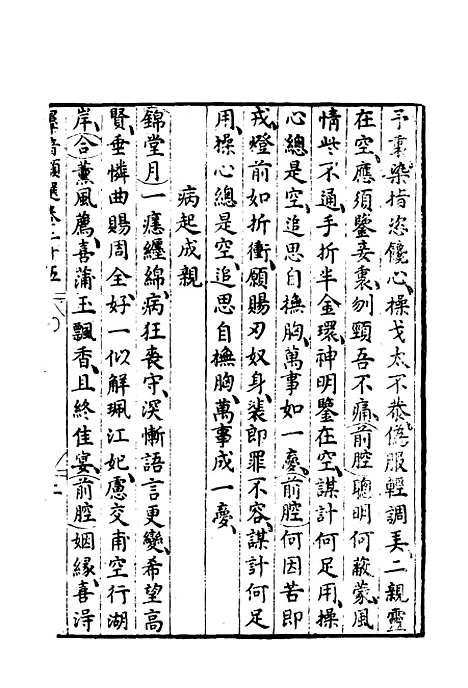 予裏染指恣饞心操戈太不恭偽服輕調美二親靈
在空應須鑒妾裏刎頸吾不痛前腔聰明何蔽蒙風
情些不通手折半金環神明鑒在空謀計何足用操
心總是空追思自撫胸萬事如一夢前腔何因苦即
戎燈前如折衝願賜刃奴身裝即罪不容謀計何足
用操心總是空追思自撫胸萬事成一夢
病起成親
錦堂月一癔纏綿病狂喪守深慚語言更變希望高
賢垂憐曲賜周全好一似解珮江妃慮交甫空行湖
岸合薰風薦喜蒲玉飄香且終佳宴前腔姻緣喜得
群音類選卷二十五